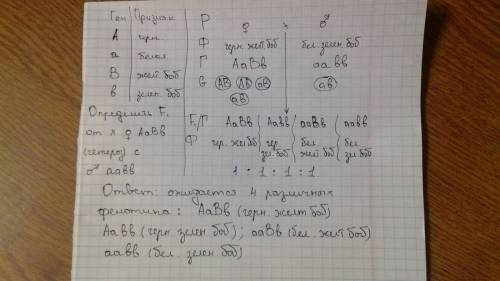 Ген | Признак
А | черн.
а | белая
В | желт. боб
в | зелен. боб
Определить F₁
от ♀ АаВв
(гетероз) с
♂ аавв
Р ♀ × ♂
Ф черн. желт. боб бел. зелен. боб
Г АаВв аавв
G АВ Ав аВ ав
ав
F₁/Г АаВв Аавв ааВв аавв
Ф чер. жел. боб чер. зел. боб бел. желт. боб бел. зел. боб
1 : 1 : 1 : 1
Ответ: ожидается 4 различных
фенотипа: АаВв (черн. желт боб)
Аавв (черн. зелен боб); ааВв (бел. жел. боб)
аавв (бел. зелен. боб)